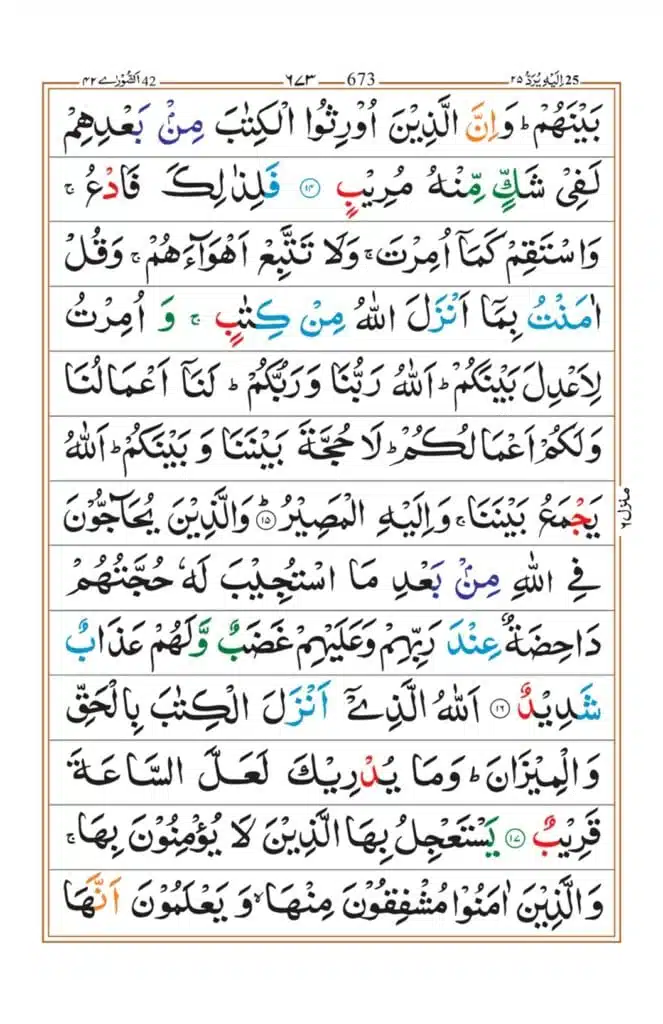 25 اِلَيْهِ يُرَدُّ ٢٥ 673 ٦٧٣ 42 اَلشُّوْرٰى ٤٢
بَيْنَهُمْ ؕ وَاِنَّ الَّذِيْنَ اُوْرِثُوا الْكِتٰبَ مِنْۢ بَعْدِهِمْ
لَفِيْ شَكٍّ مِّنْهُ مُرِيْبٍ ﴿١٤﴾ فَلِذٰلِكَ فَادْعُ ۚ
وَاسْتَقِمْ كَمَاۤ اُمِرْتَ ۚ وَلَا تَتَّبِعْ اَهْوَآءَهُمْ ۚ وَقُلْ
اٰمَنْتُ بِمَاۤ اَنْزَلَ اللّٰهُ مِنْ كِتٰبٍ ۚ وَ اُمِرْتُ
لِاَعْدِلَ بَيْنَكُمْ ؕ اَللّٰهُ رَبُّنَا وَرَبُّكُمْ ؕ لَنَاۤ اَعْمَالُنَا
وَلَكُمْ اَعْمَالُكُمْ ؕ لَا حُجَّةَ بَيْنَنَا وَ بَيْنَكُمْ ؕ اَللّٰهُ
يَجْمَعُ بَيْنَنَا ۚ وَاِلَيْهِ الْمَصِيْرُ ؕ﴿١٥﴾ وَالَّذِيْنَ يُحَآجُّوْنَ
فِي اللّٰهِ مِنْۢ بَعْدِ مَا اسْتُجِيْبَ لَهٗ حُجَّتُهُمْ
دَاحِضَةٌ عِنْدَ رَبِّهِمْ وَعَلَيْهِمْ غَضَبٌ وَّلَهُمْ عَذَابٌ
شَدِيْدٌ ﴿١٦﴾ اَللّٰهُ الَّذِيْۤ اَنْزَلَ الْكِتٰبَ بِالْحَقِّ
وَالْمِيْزَانَ ؕ وَمَا يُدْرِيْكَ لَعَلَّ السَّاعَةَ
قَرِيْبٌ ﴿١٧﴾ يَسْتَعْجِلُ بِهَا الَّذِيْنَ لَا يُؤْمِنُوْنَ بِهَا ۚ
وَالَّذِيْنَ اٰمَنُوْا مُشْفِقُوْنَ مِنْهَا ۙ وَ يَعْلَمُوْنَ اَنَّهَا
منزل ٦